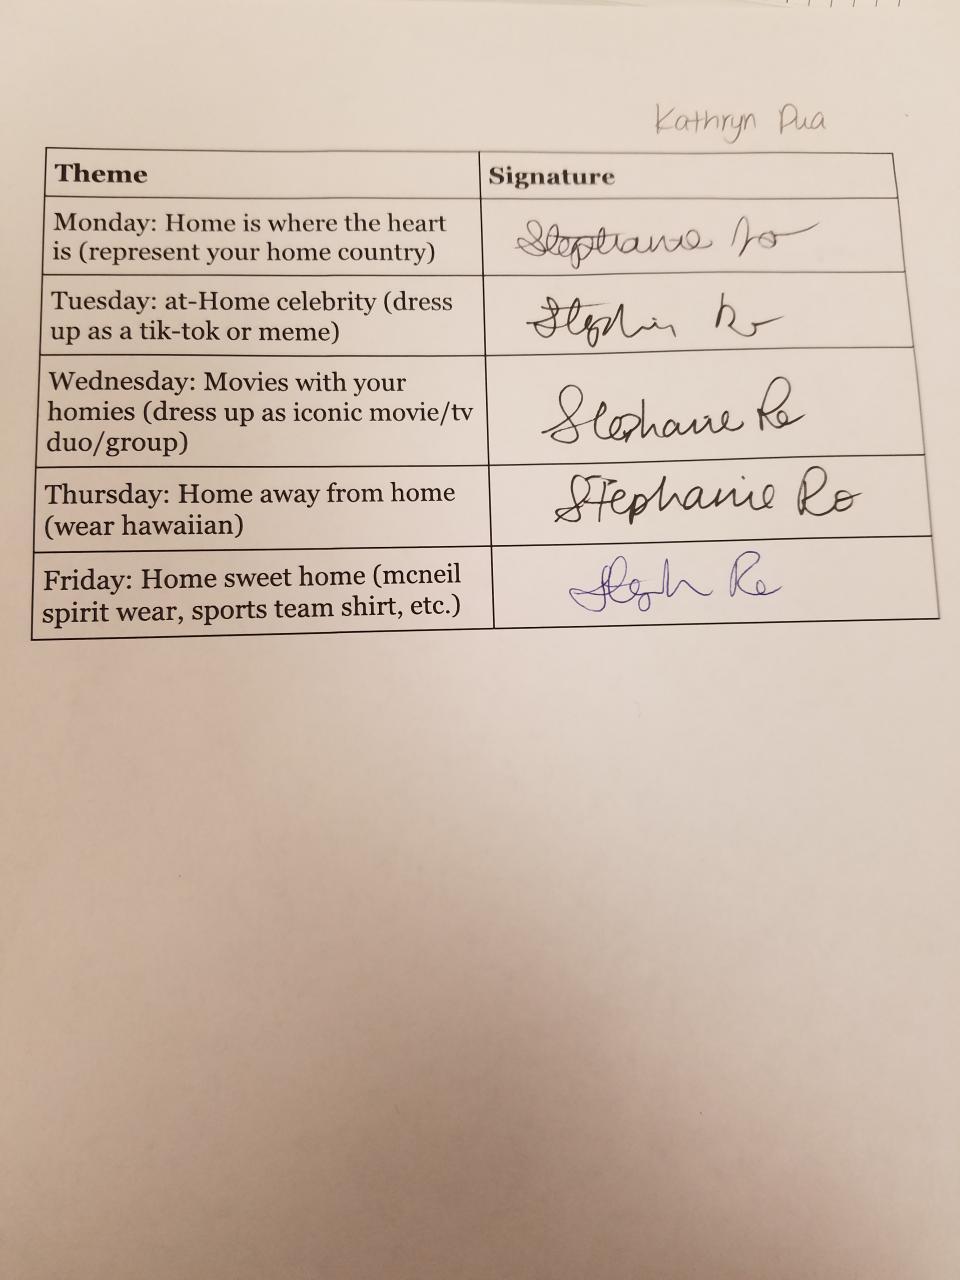 Kathryn Dua
Theme
Signature
Monday: Home is where the heart
is (represent your home country)
Stephanie Ro
Tuesday: at-Home celebrity (dress
up as a tik-tok or meme)
Wednesday: Movies with your
homies (dress up as iconic movie/tv
duo/group)
Stephanie Ro
Thursday: Home away from home
(wear hawaiian)
Stephanie Ro
Friday: Home sweet home (mcneil
spirit wear, sports team shirt, etc.)